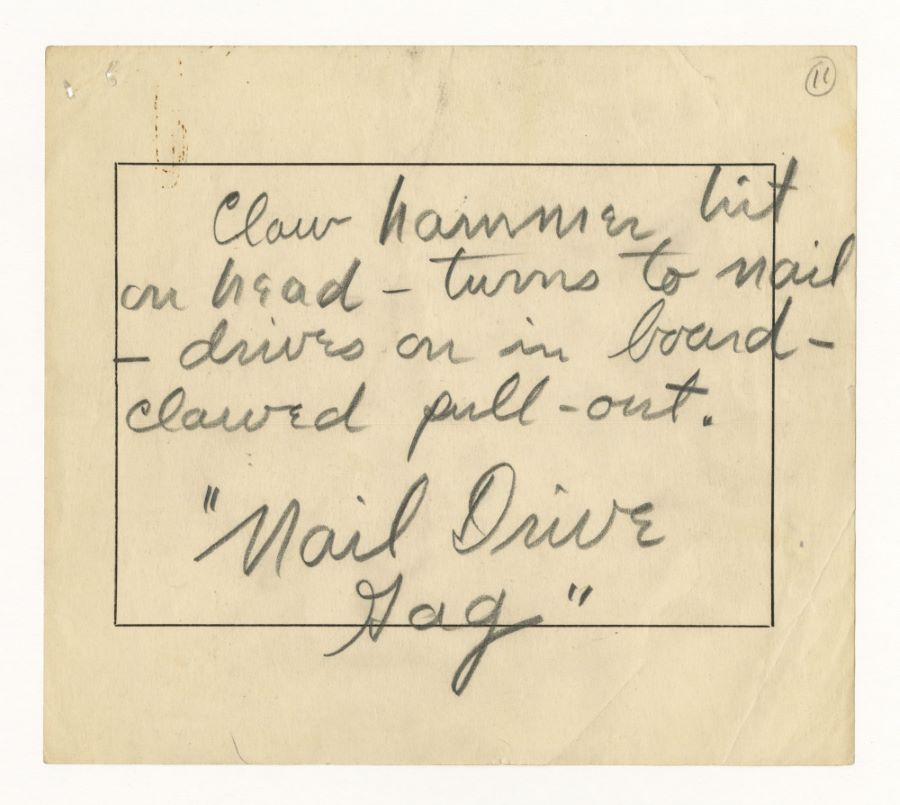 11
Claw hammer hit
on head - turns to nail
- drives on in board -
clawed pull-out.
"Nail Drive
Gag"